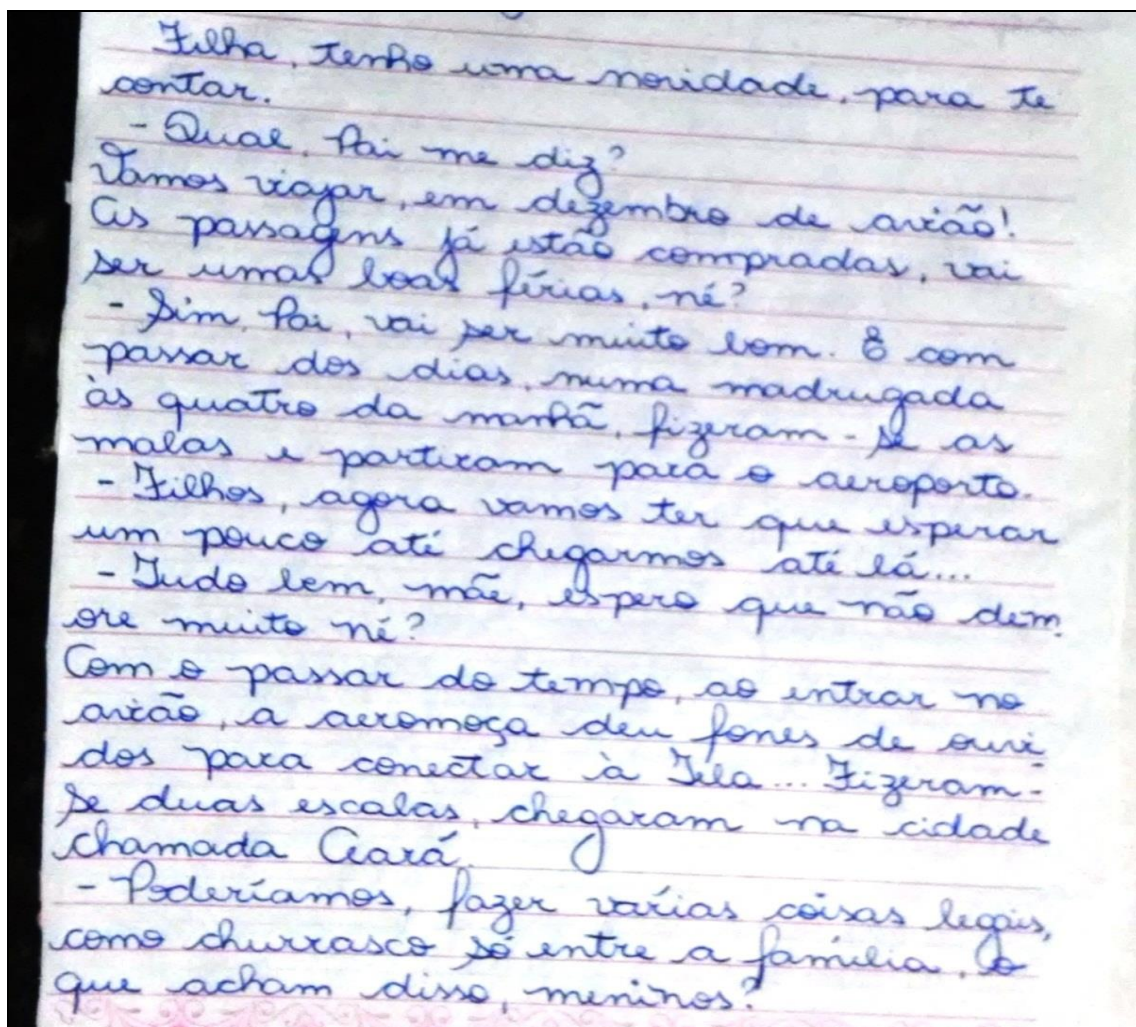 Filha, tenho uma novidade, para te
contar.
- Qual, Pai me diz?
Vamos viajar, em dezembro de avião!
As passagens já estão compradas, vai
ser umas boas férias, né?
- Sim, Pai, vai ser muito bom. E com
passar dos dias, numa madrugada
às quatro da manhã, fizeram-se as
malas e partiram para o aeroporto.
- Filhos, agora vamos ter que esperar
um pouco até chegarmos até lá...
- Tudo bem, mãe, espero que não dem
ore muito né?
Com o passar do tempo, ao entrar no
avião, a aeromoça deu fones de ouvi
dos para conectar à Tela... Fizeram-
se duas escalas, chegaram na cidade
chamada Ceará.
- Poderíamos, fazer várias coisas legais,
como churrasco só entre a família, o
que acham disso, meninos?